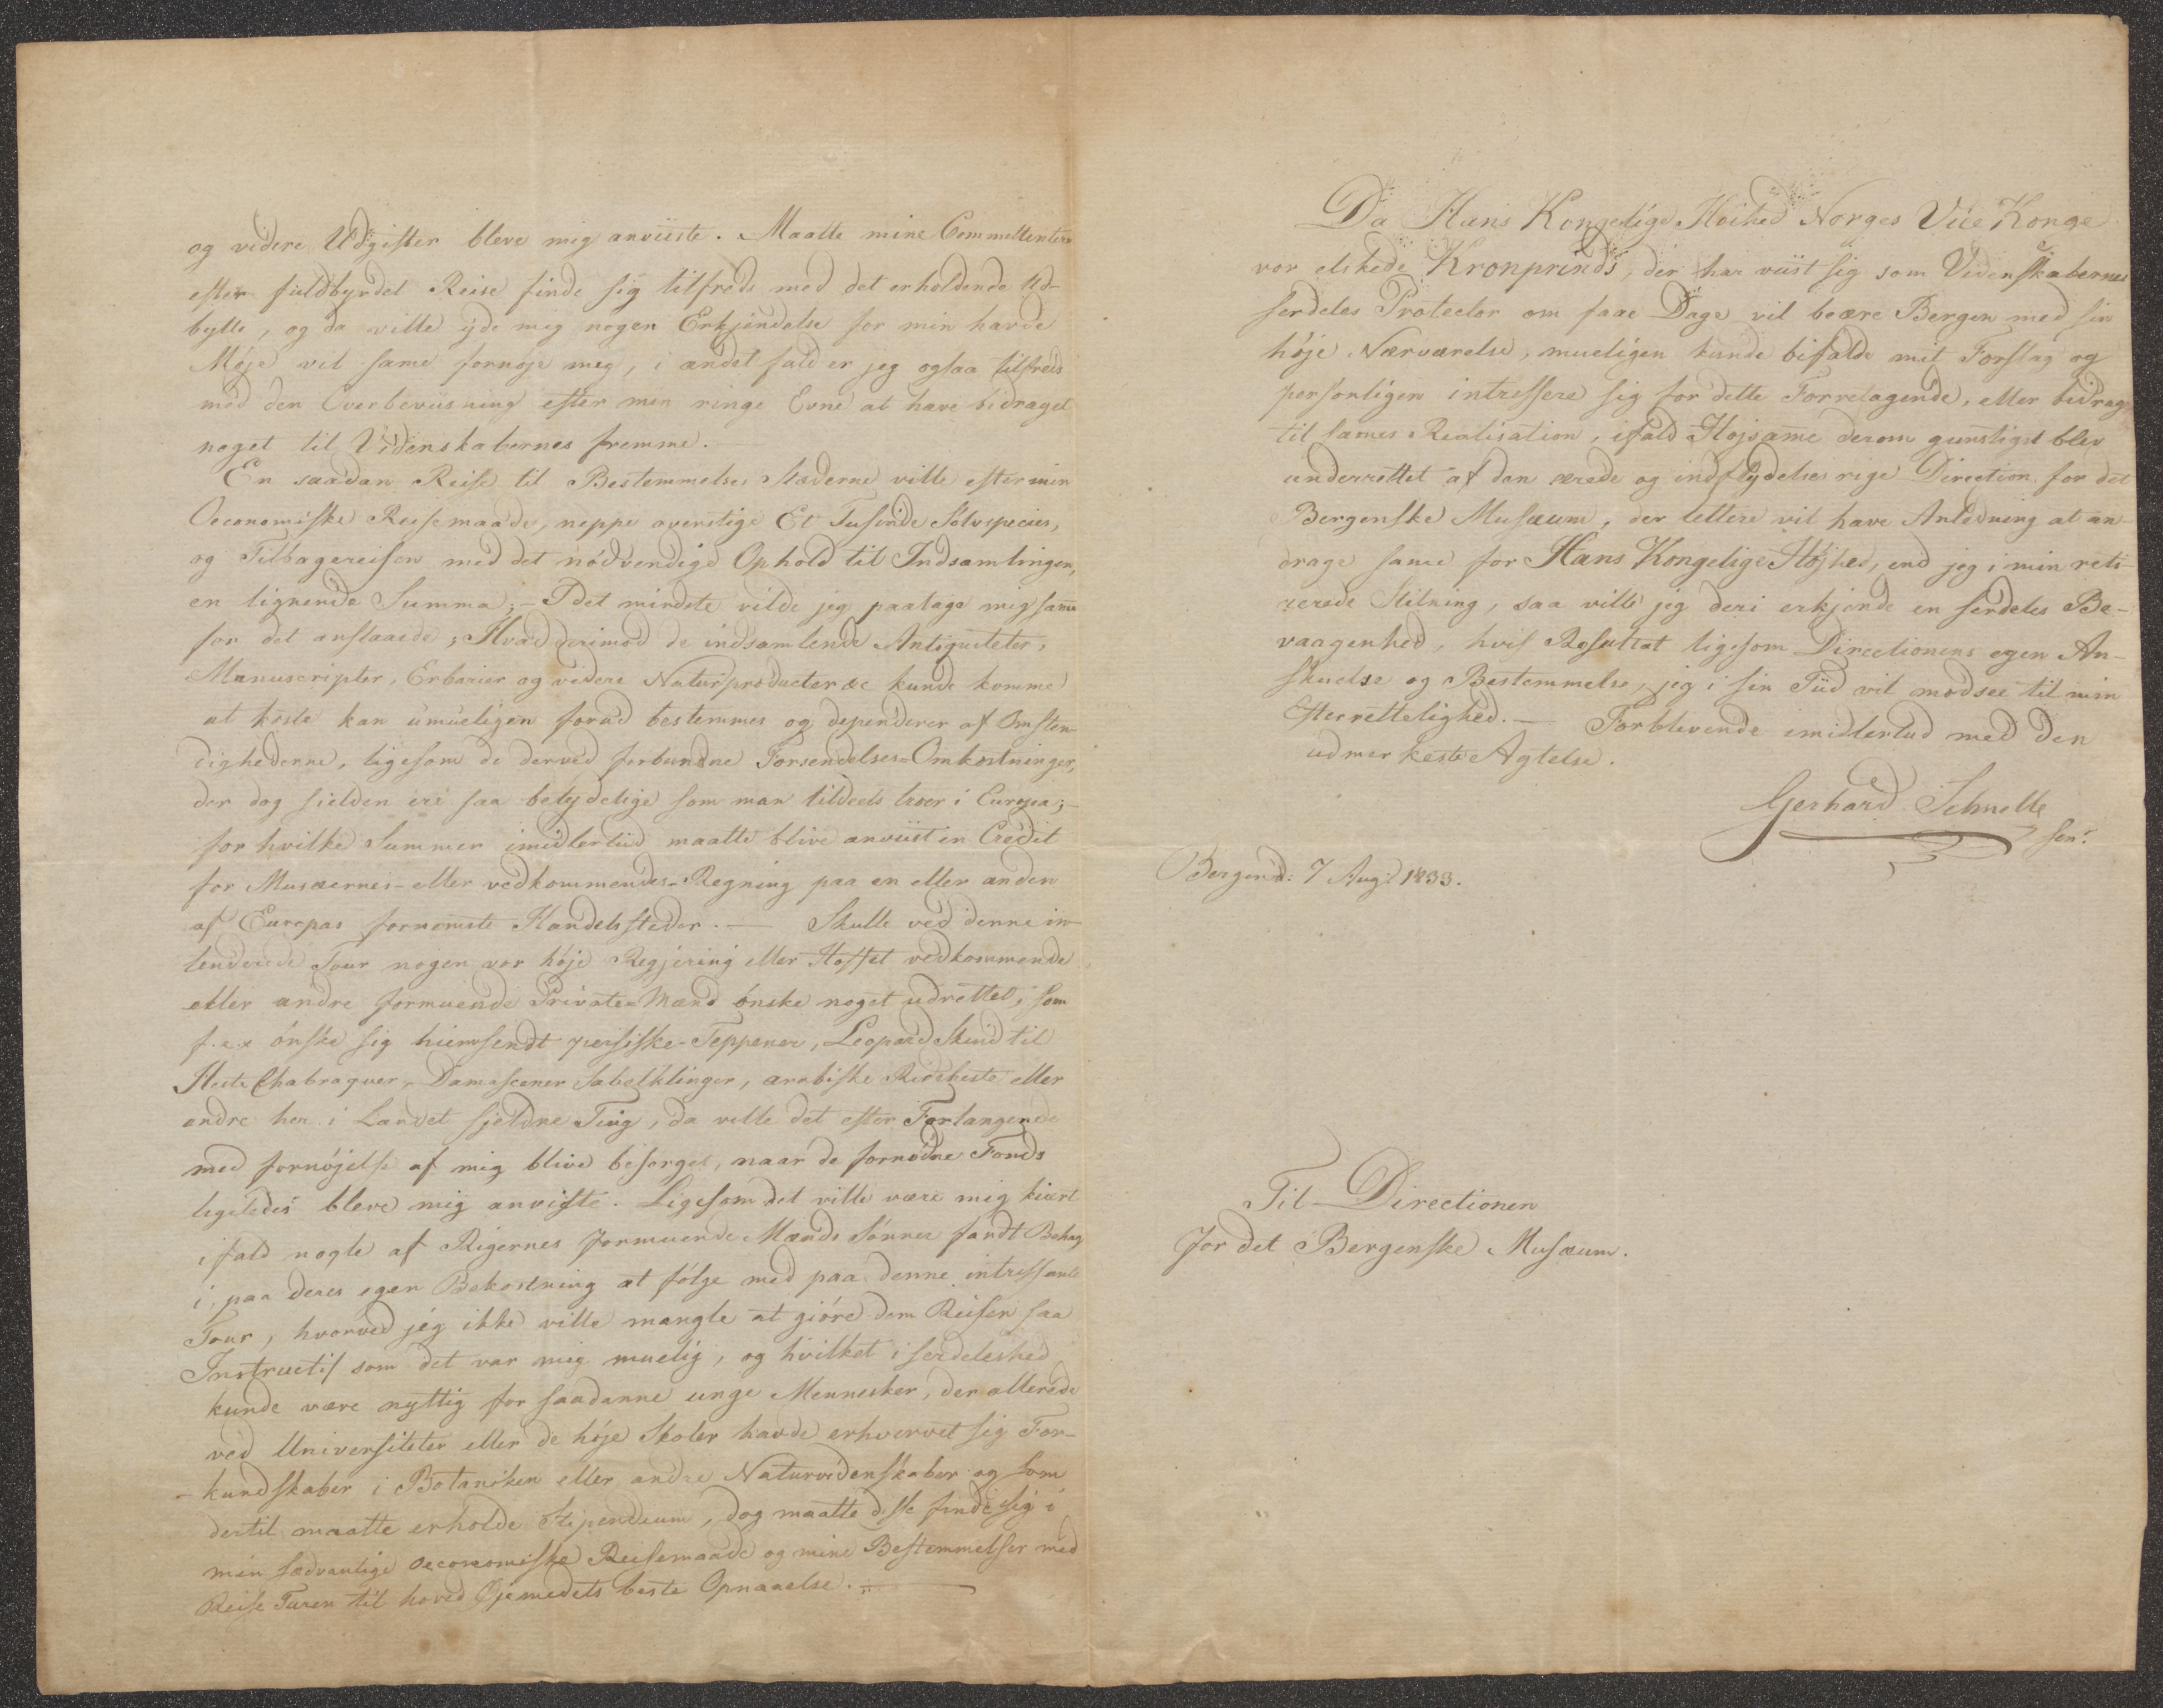 og videre Udgifter bleve mig anviiste. Maatte mine Committentere
efter fuldbyrdet Reise finde sig tilfreds med det erholdende Ud-
bytte, og da ville yde mig nogen Erkjendelse for min havde
Møje vil same fornøje mig, i andet fald er jeg ogsaa tilfreds
med den Overbeviisning efter min ringe Evne at have bidraget
noget til Videnskabernes fremme. —
En saadan Reise til Bestemmelses Stæderne ville efter min
Oeconomiske Reisemaade, neppe overstige Et Tusinde Sølvspecies,
og Tilbagereisen med det nødvendige Ophold til Indsamlingen,
en lignende Summa; — I det mindste vilde jeg paatage mig same
for det anslaaede; Hvad derimod de indsamlende Antiquiteter,
Manuscripter, Erbarier og videre Naturproducter &c kunde komme
at koste kan umueligen forud bestemmes og dependerer af Omsten-
dighederne, ligesom de derved forbundne Forsendelses-Omkostninger,
der dog sielden ere saa betydelige som man tildeels troer i Europa; —
for hvilke Summer imidlertiid maatte blive anviist en Credit
for Musæernes- eller vedkommendes-Regning paa en eller anden
af Europas fornemste Handelsstæder. — Skulle ved denne in-
tenderede Tour nogen vor høje Regjering eller Hoffet vedkommende
eller andre formuende Private-Mænd ønske noget udrettet, som
f. ex ønske sig hiemsendt persiske-Teppener, Leopard Skind til
Heste Chabraquer, Damascener Sabelklinger, arabiske Rideheste eller
andre her i Landet sjeldne Ting, da ville det efter Forlangende
med fornøjelse af mig blive besørget, naar de fornødne Fonds
ligeledes bleve mig anviste. Ligesom det ville være mig kiært
ifald nogle af Rigernes formuende Mænds Sønner fandt Behag
i, paa deres egen Bekostning at følge med paa denne intressante
Tour, hvorved jeg ikke ville mangle at giøre dem Reisen saa
Instructif som det var mig muelig, og hvilket i serdeleshed
kunde være nyttig for saadanne unge Mennesker, der allerede
ved Universiteter eller de høje Skoler havde erhvervet sig For-
- kundskaber i Botaniken eller andre Naturvidenskaber og som
dertil maatte erholde Stipendium, dog maatte disse finde sig i
min sædvanlige oeconomiske Reisemaade og mine Bestemmelser med
Reise Turen til hoved Øjemedets beste Opnaaelse. —
Da Hans Kongelige Høihed Norges Vice Konge
vor elskede Kronprinds, der har viist sig som Videnskabernes
serdeles Protector om faae Dage vil beære Bergen med sin
høje Nærværelse, mueligen kunde bifalde mit Forslag og
personligen intressere sig for dette Foretagende, eller bidrage
til sames Realisation, ifald Højsame derom gunstigst blev
underrettet af den ærede og indflydelses rige Direction for det
Bergenske Musæum, der lettere vil have Anledning at an-
drage same for Hans Kongelige Højhed, end jeg i min reti-
rerede Stilning, saa ville jeg deri erkjende en serdeles Be-
vaagenhed, hvis Resultat ligesom Directionens egen An-
skuelse og Bestemmelse, jeg i sin Tiid vil modsee til min
Efterrettelighed. — Forblevende imidlertid med den
udmerkeste Agtelse.
Gerhard Schnelle
sen:
Bergen d: 7 Aug: 1833.
Til Directionen
for det Bergenske Musæum.